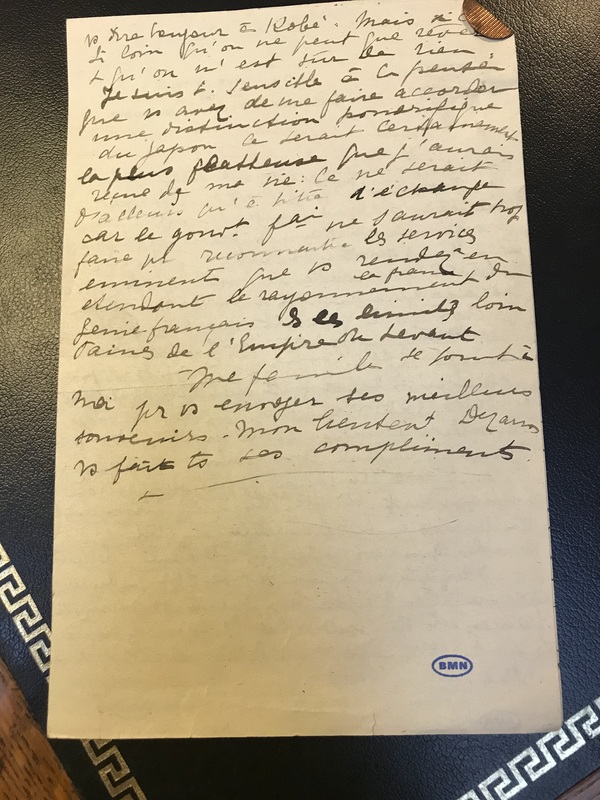 vs dire bonjour à Kobé. Mais
si loin qu'on ne peut que rêver
& qu'on n'est sûr de rien.
Je suis t. sensible à la pensée
que vs avez de me faire accorder
une distinction honorifique
du Japon ce serait certainement
la plus flatteuse que j'aurais
reçue de ma vie: Ce ne serait
d'ailleurs qu'à titre d'échange
car le gouvt. fai ne saurait trop
faire pr reconnaitre les services
eminent que vs rendez en
etendant le rayonnement du
la france
genie français les limites loin
taines de l'Empire du Levant
Ma famille se joint à
moi pr vs envoyer ses meilleurs
souvenirs. Mon lieutent
vs fait ts ses compliments.
BMN